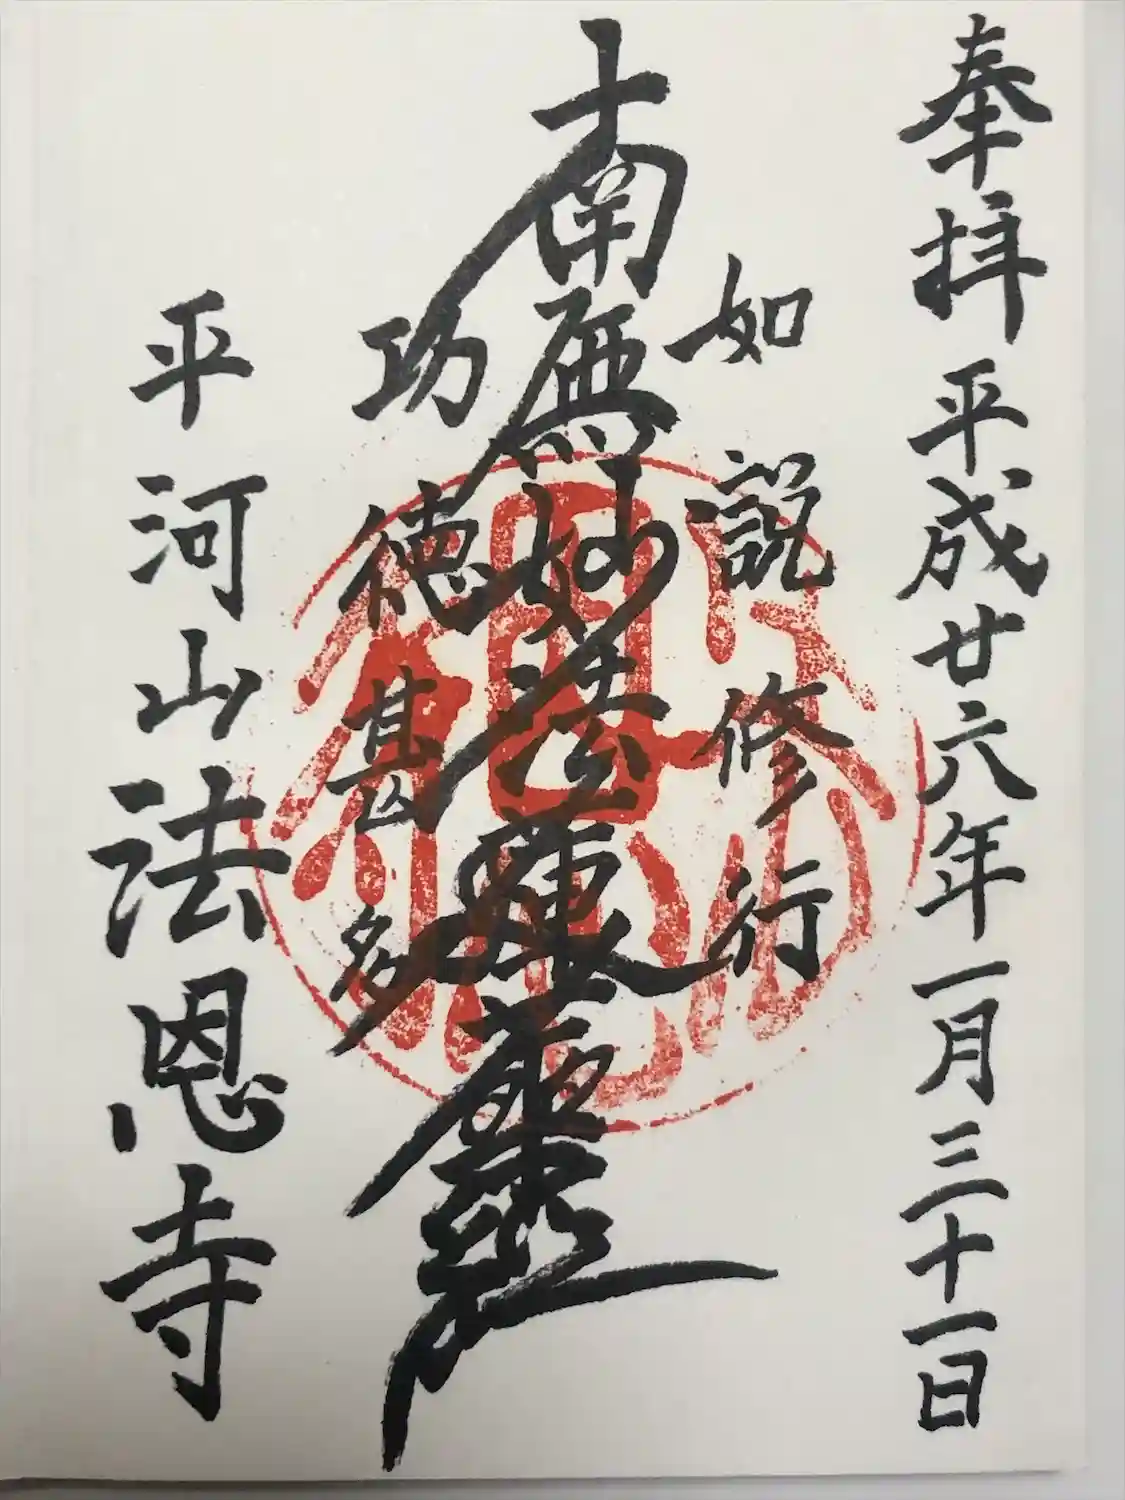 奉拝 平成廿六年一月三十一日
如説修行
南無妙法蓮華経
功徳甚多
平河山 法恩寺